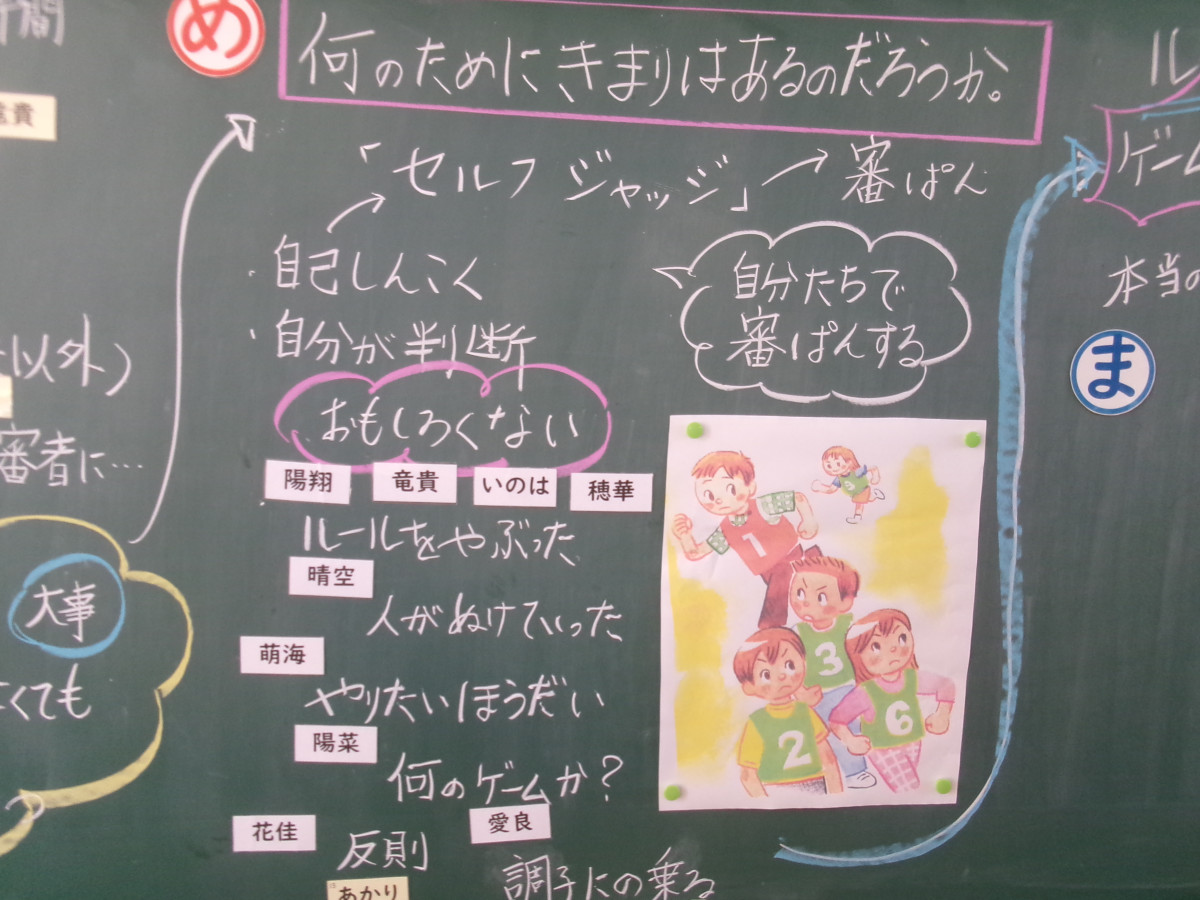 め
何のためにきまりはあるのだろうか。
「セルフジャッジ」→審ぱん
・自己しんこく
・自分が判断
自分たちで
審ぱんする
おもしろくない
陽翔 竜貴 いのは 穂華
ルールをやぶった
晴空
人がぬけていった
萌海
やりたいほうだい
陽菜
何のゲームか?
花佳 愛良
反則
あかり
調子にの乗る
1
3
2
6
以外)
審者に…
大事
くても
貴
間
ル
ゲーム
本当の
ま